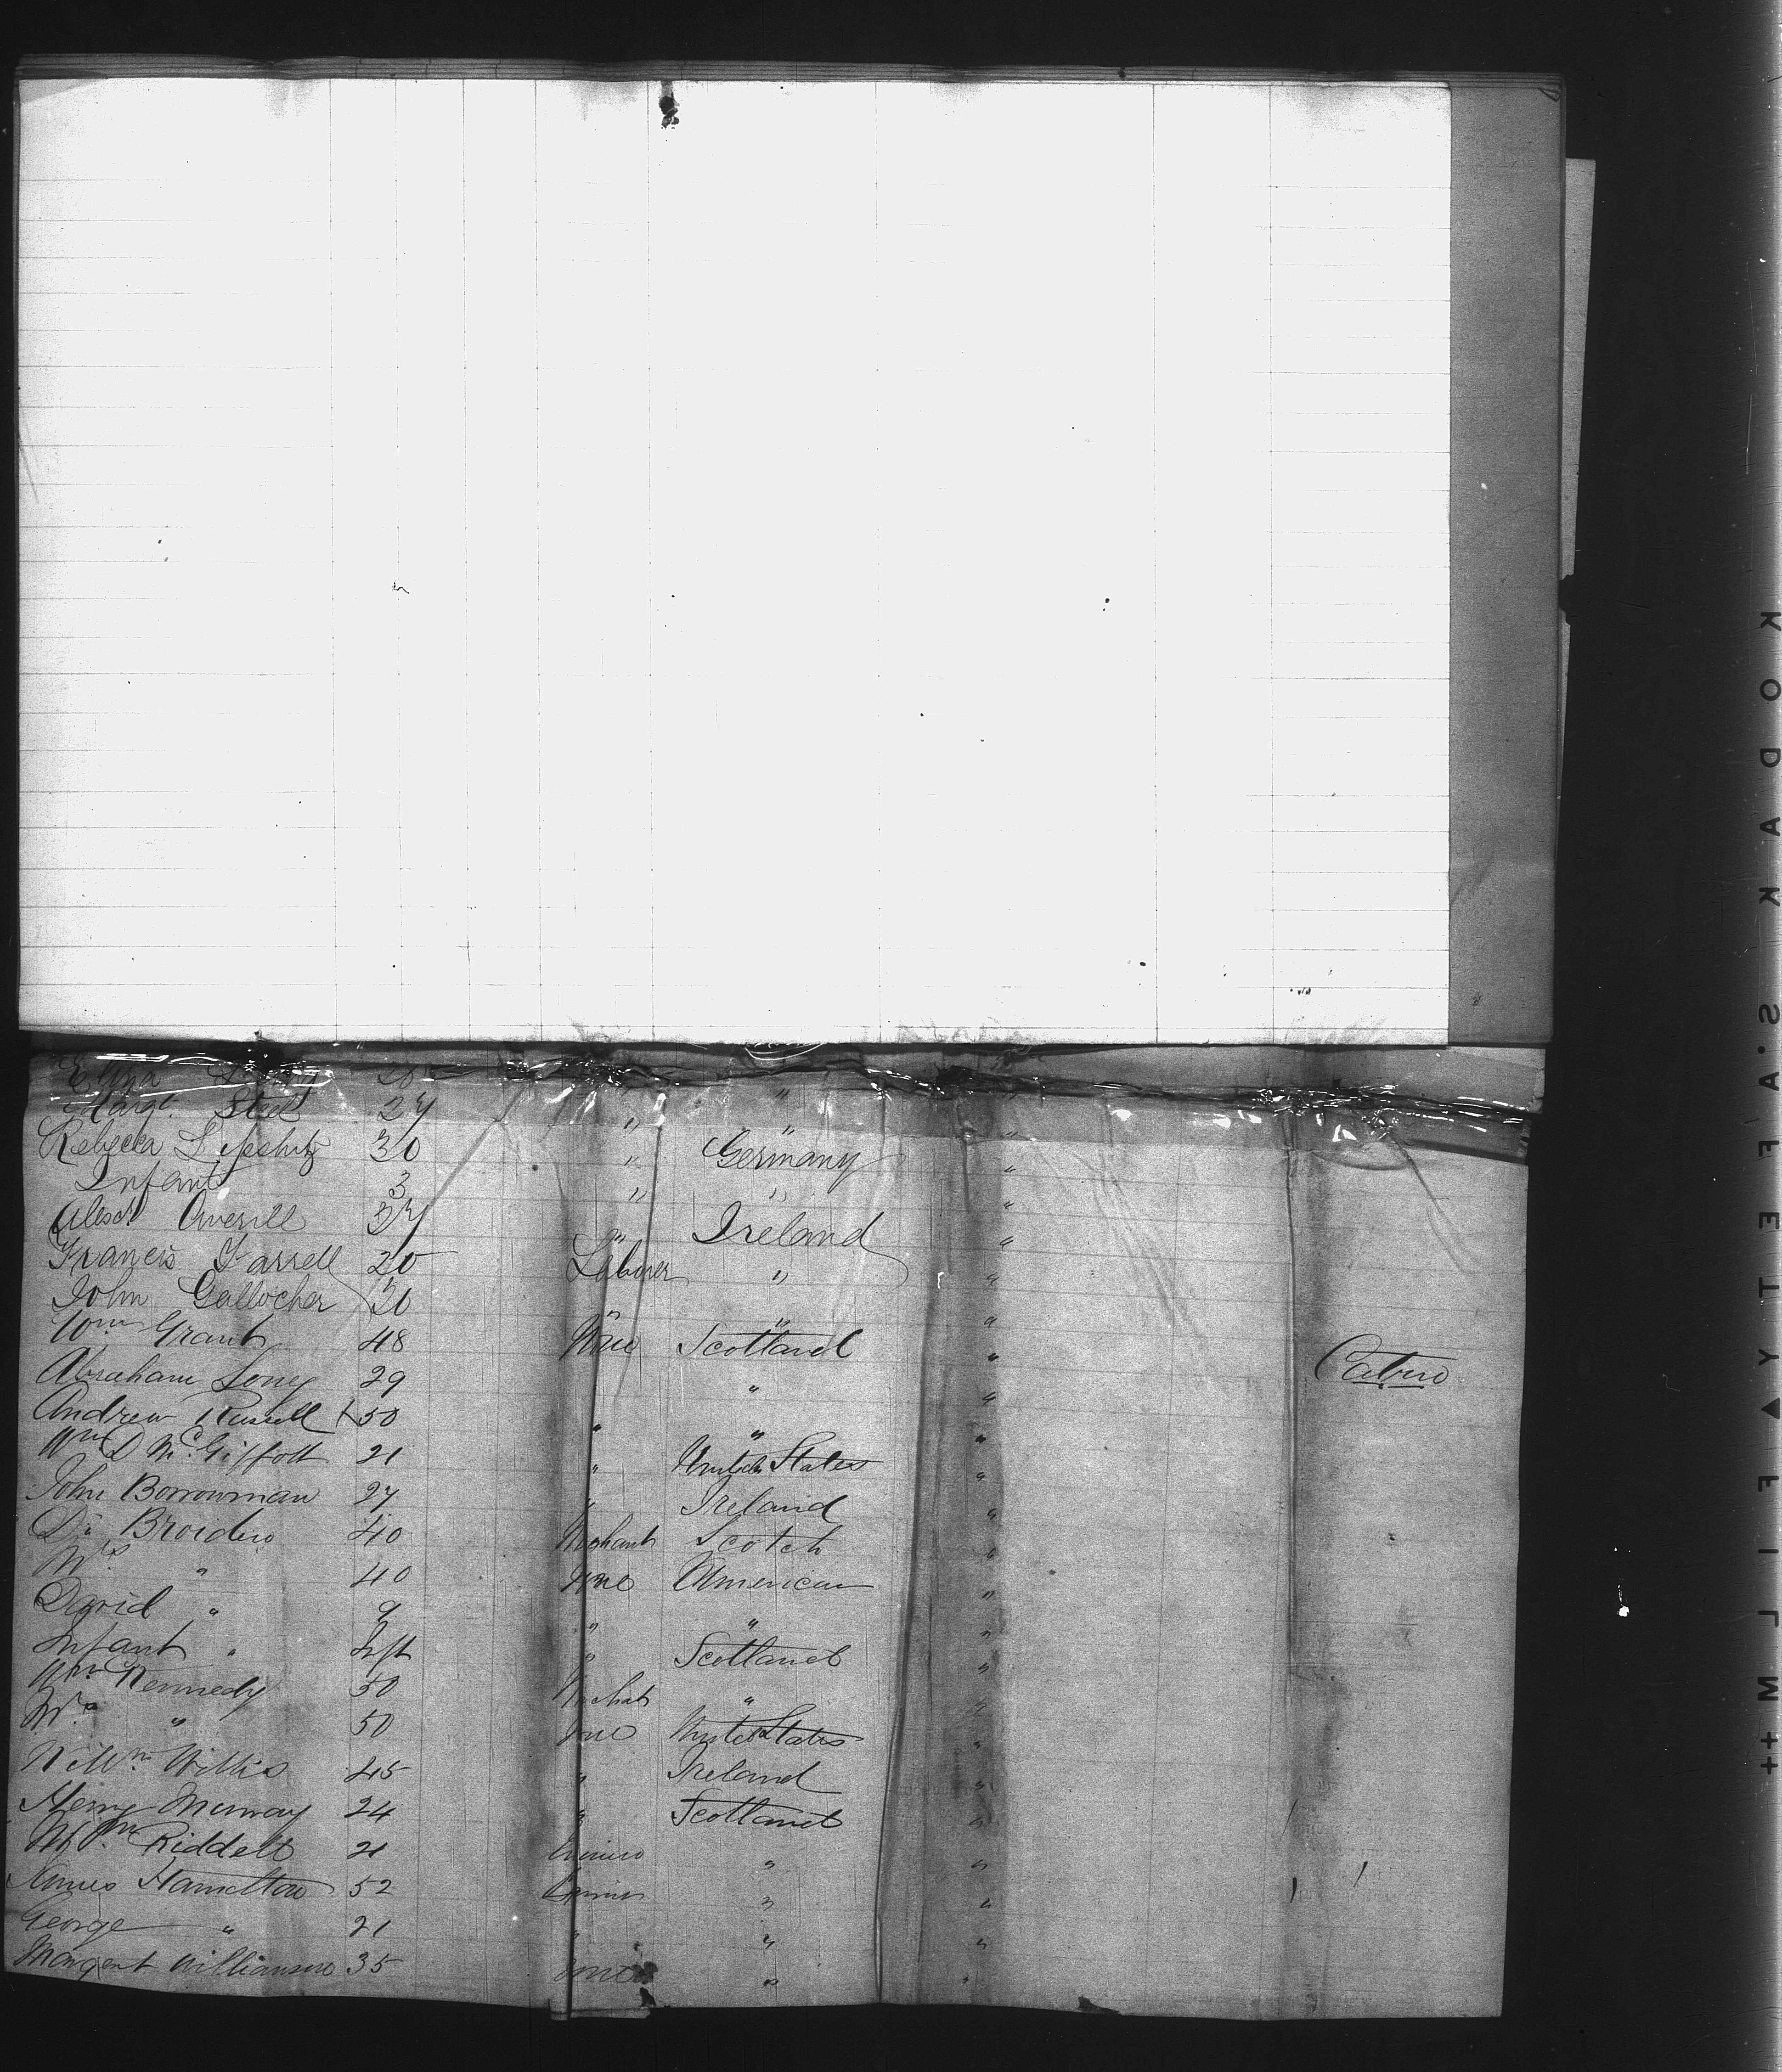 Eliza 28 "
Margt. Steel 27 " "
Rebecca Lipshitz 30 " Germany "
Infant 3 " " "
Alexr Averill 37 " Ireland "
Francis Farrell 20 Laborer " "
John Gallocher 30 " " "
Wm Grant 48 None Scotland " Cabin
Abraham Long 29 " "
Andrew Russell 50 " " "
Wm D McGiffott 21 " United States "
John Borrowman 27 " Ireland "
Dr Broidero 40 Mchant Scotch "
Mrs " 40 None American "
David " 9 " " "
Infant " Inft " Scotland "
Wm Kennedy 50 Mchat " "
Mrs " 50 None United States "
Wm Willis 45 " Ireland "
Henry Murray 24 " Scotland "
Wm Riddell 21 " "
James Hamilton 52 " "
George " 21 " " "
Margent Williamson 35 None " "
KODAK SAFETY FILM